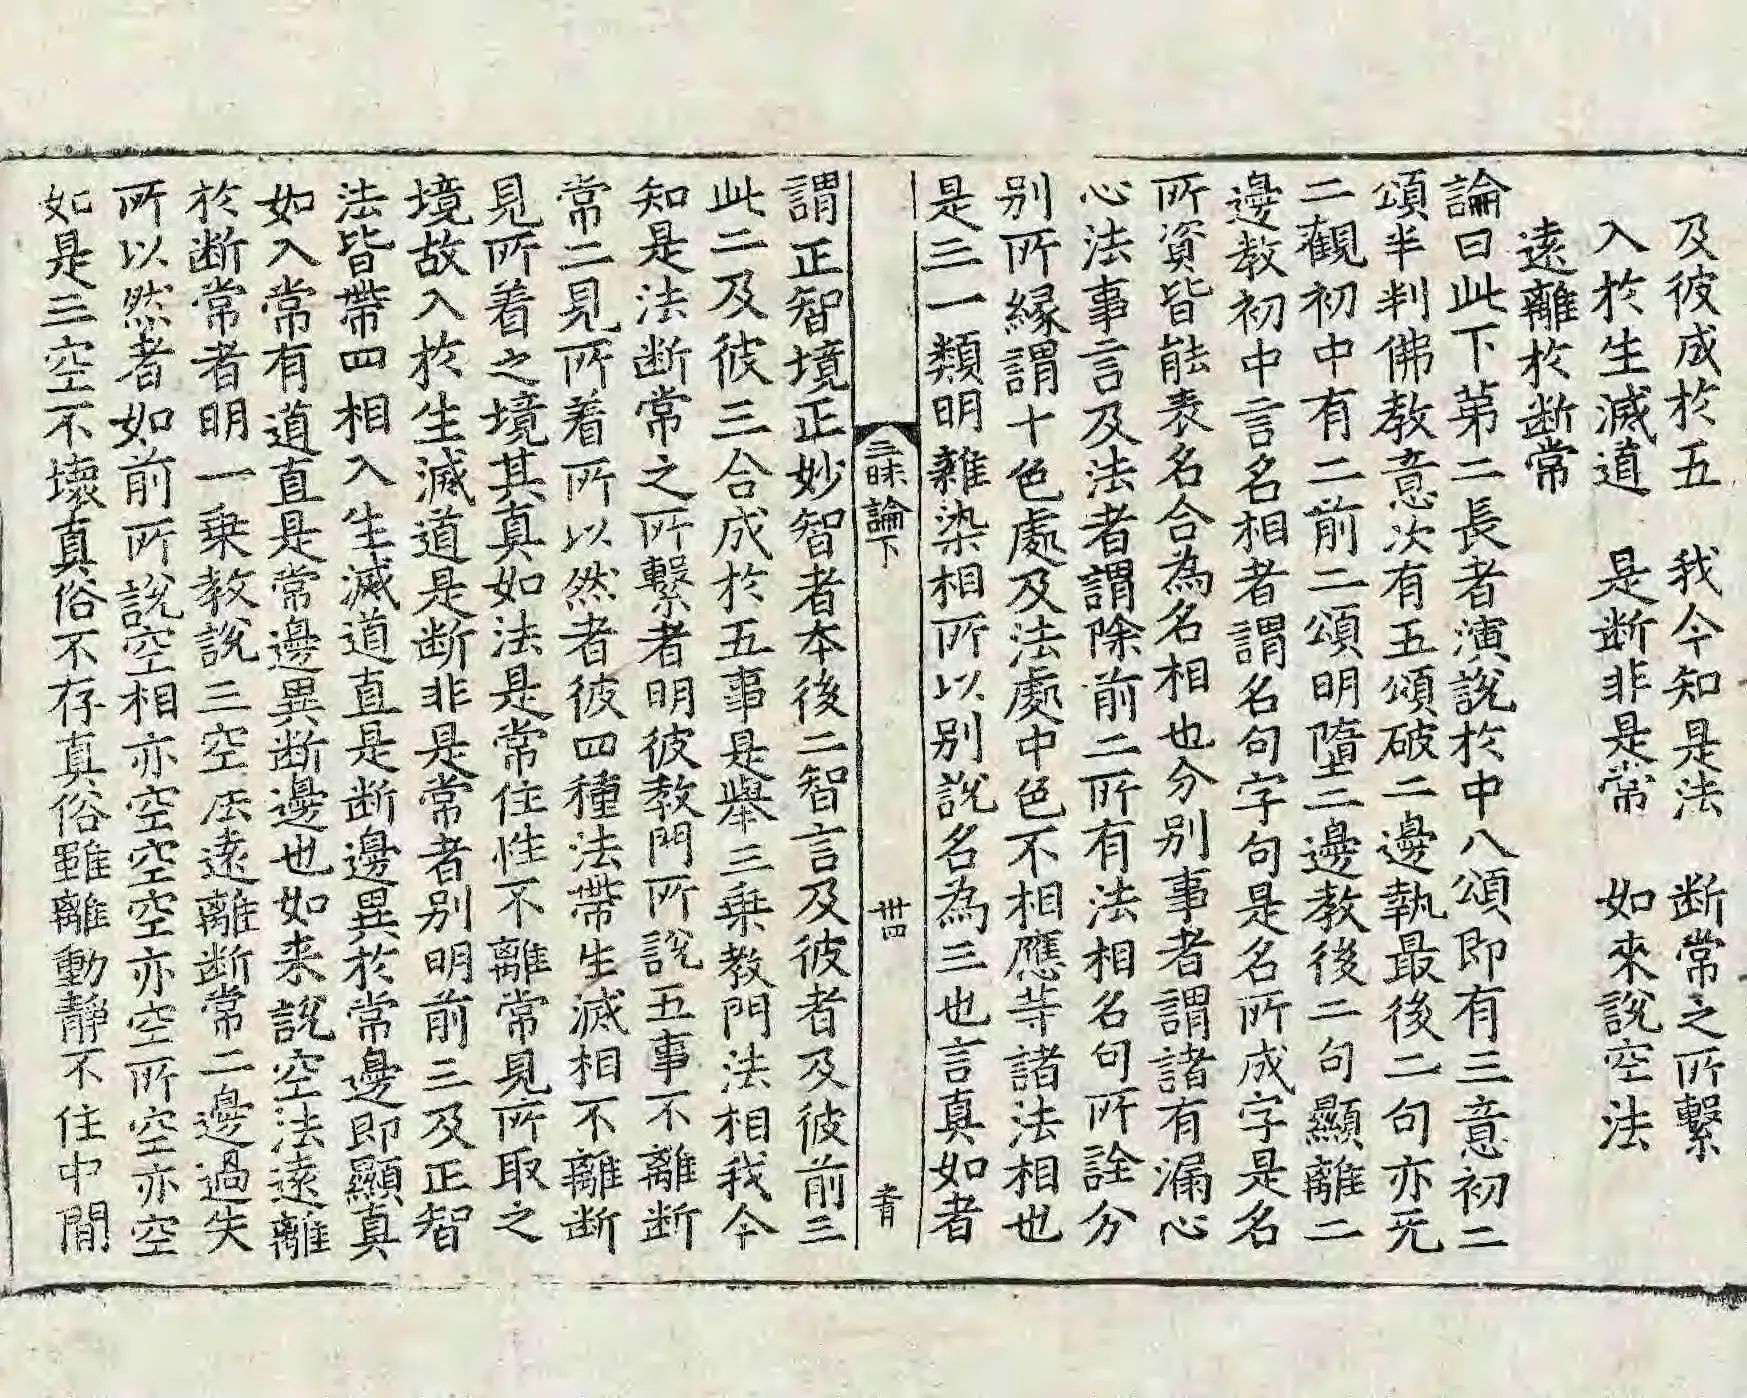 及彼成於五　我今知是法　断常之所繫
入於生滅道　是断非是常　如來說空法
遠離於断常
論曰此下第二長者演說於中八頌即有三意初二
頌半判佛教意次有五頌破二邊執最後二句亦无
二觀初中有二前二頌明墮二邊教後二句顯離二
邊教初中言名相者謂名句字句是名所成字是名
所資皆能表名合為名相也分別事者謂諸有漏心
心法事言及法者謂除前二所有法相名句所詮分
别所縁謂十色處及法處中色不相應等諸法相也
是三一類明雜染相所以别說名為三也言真如者
三昧論下　卅四　青
謂正智境正妙智者本後二智言及彼者及彼前三
此二及彼三合成於五事是舉三乗教門法相我今
知是法断常之所繫者明彼教門所說五事不離断
常二見所着所以然者彼四種法帶生滅相不離断
見所着之境其真如法是常住性不離常見所取之
境故入於生滅道是断非是常者别明前三及正智
法皆帶四相入生滅道直是断邊異於常邊即顯真
如入常有道直是常邊異断邊也如来說空法遠離
於断常者明一乗教說三空法遠離断常二邊過失
所以然者如前所說空相亦空空空亦空所空亦空
如是三空不壞真俗不存真俗雖離動靜不住中閒